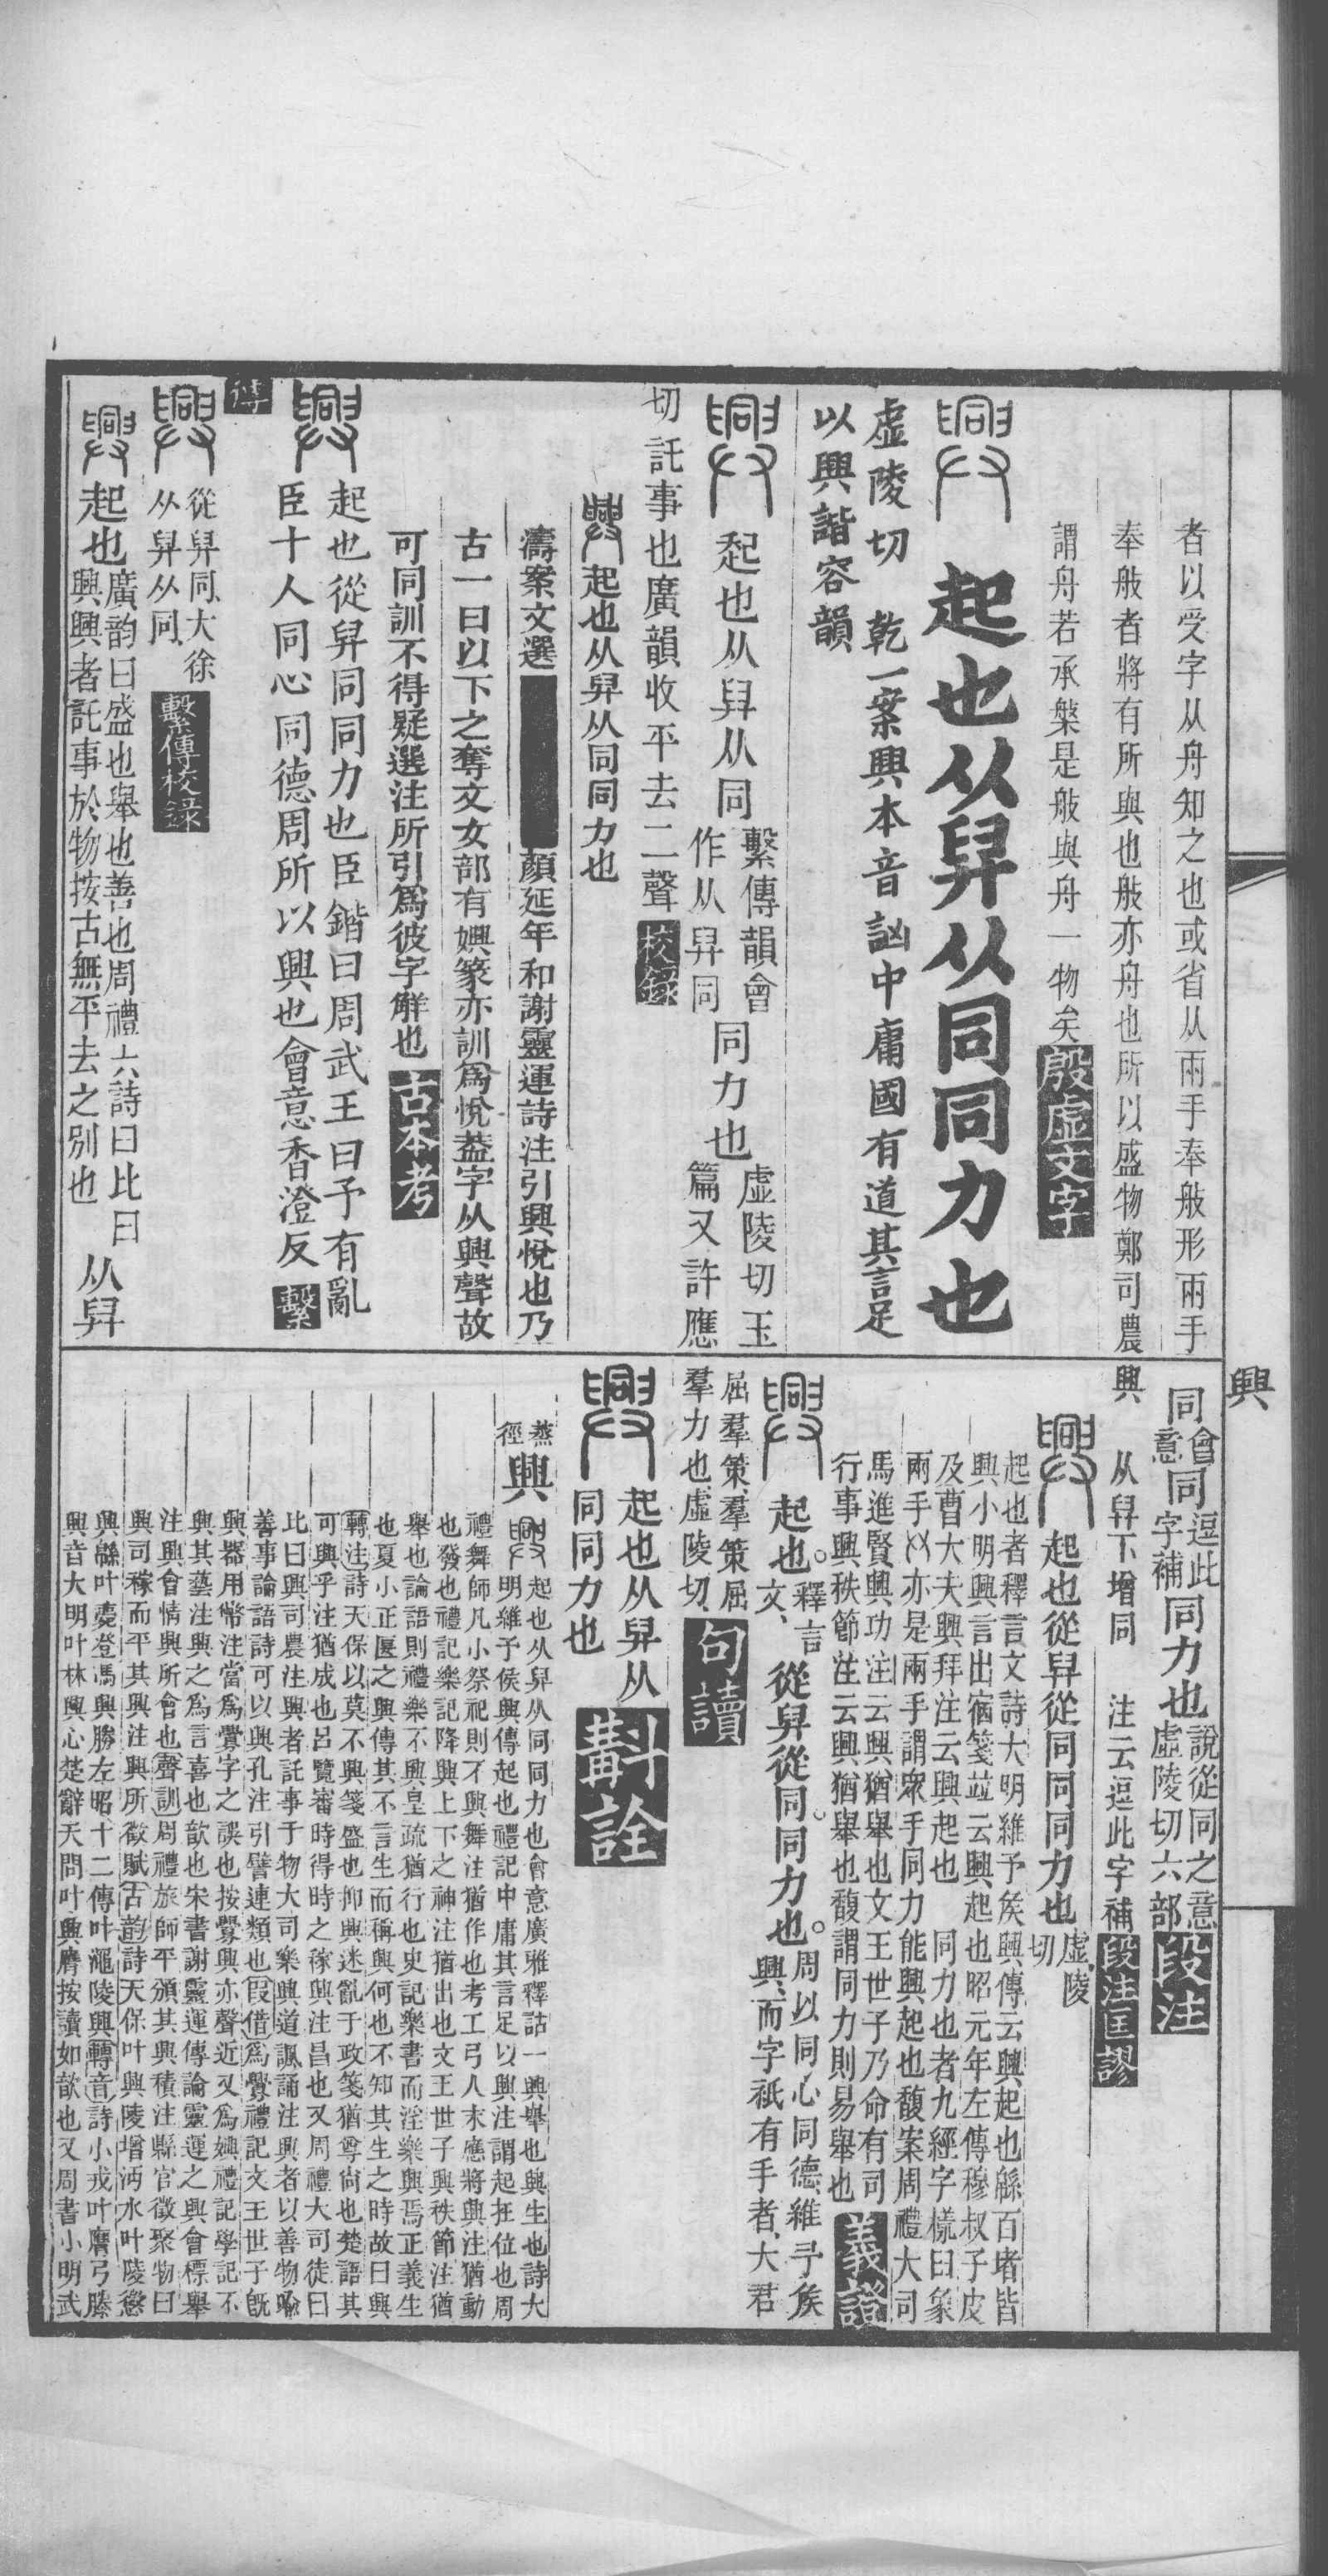 興
者以受字从舟知之也或省从兩手奉般形兩手
奉般者將有所與也般亦舟也所以盛物鄭司農
謂舟若承槃是般與舟一物矣殷虛文字
起也从舁从同同力也
虛陵切　乾一案興本音訩中庸國有道其言足
以興諧容韻
起也从舁从同
繫傳韻會
作从舁同
同力也
虛陵切玉
篇又許應
切託事也廣韻收平去二聲校錄
起也从舁从同同力也
濤案文選顏延年和謝靈運詩注引興悅也乃
古一曰以下之奪文女部有嬹篆亦訓爲悅葢字从興聲故
可同訓不得疑選注所引爲彼字解也古本考
起也從舁同同力也臣鍇曰周武王曰予有亂
臣十人同心同德周所以興也會意香澄反繫
傳
從舁同大徐
从舁从同
繫傳校錄
起也
廣韵曰盛也舉也善也周禮六詩曰比曰
興興者託事於物按古無平去之別也
从舁
同
會
意
同
逗此
字補
同力也
說從同之意
虛陵切六部
段注
興　从舁下增同　注云逗此字補段注匡謬
起也從舁從同同力也
虛陵
切
起也者釋言文詩大明維予矦興傳云興起也緜百堵皆
興小明興言出宿箋竝云興起也昭元年左傳穆叔子皮
及曹大夫興拜注云興起也　同力也者九經字樣曰象
兩手𠬞亦是兩手謂衆手同力能興起也馥案周禮大司
馬進賢興功注云興猶舉也文王世子乃命有司
行事興秩節注云興猶舉也馥謂同力則易舉也義證
起也
釋言
文
從舁從同同力也
周以同心同德維予矦
興而字祇有手者大君
屈羣策羣策屈
羣力也虛陵切
句讀
起也从舁从
同同力也
斠詮
蒸
徑
興
起也从舁从同同力也會意廣雅釋詁一興舉也興生也詩大
明維予侯興傳起也禮記中庸其言足以興注謂起在位也周
禮舞師凡小祭祀則不興舞注猶作也考工弓人末應將興注猶動
也發也禮記樂記降興上下之神注猶出也文王世子興秩節注猶
舉也論語則禮樂不興皇疏猶行也史記樂書而淫樂興焉正義生
也夏小正匽之興傳其不言生而稱興何也不知其生之時故曰興
轉注詩天保以莫不興箋盛也抑興迷亂于政箋猶尊尙也楚語其
可興乎注猶成也呂覽審時得時之稼興注昌也又周禮大司徒曰
比曰興司農注興者託事于物大司樂興道諷誦注興者以善物喩
善事論語詩可以興孔注引譬連類也叚借爲釁禮記文王世子旣
興器用幣注當爲釁字之誤也按釁興亦聲近又爲嬹禮記學記不
興其藝注興之爲言喜也歆也宋書謝靈運傳論靈運之興會標舉
注興會情興所會也聲訓周禮旅師平頒其興積注縣官徵聚物曰
興司稼而平其興注興所徵賦古韵詩天保叶興陵增沔水叶陵懲
興緜叶薨登馮興勝左昭十二傳叶澠陵興轉音詩小戎叶膺弓縢
興音大明叶林興心楚辭天問叶興膺按讀如歆也又周書小明武